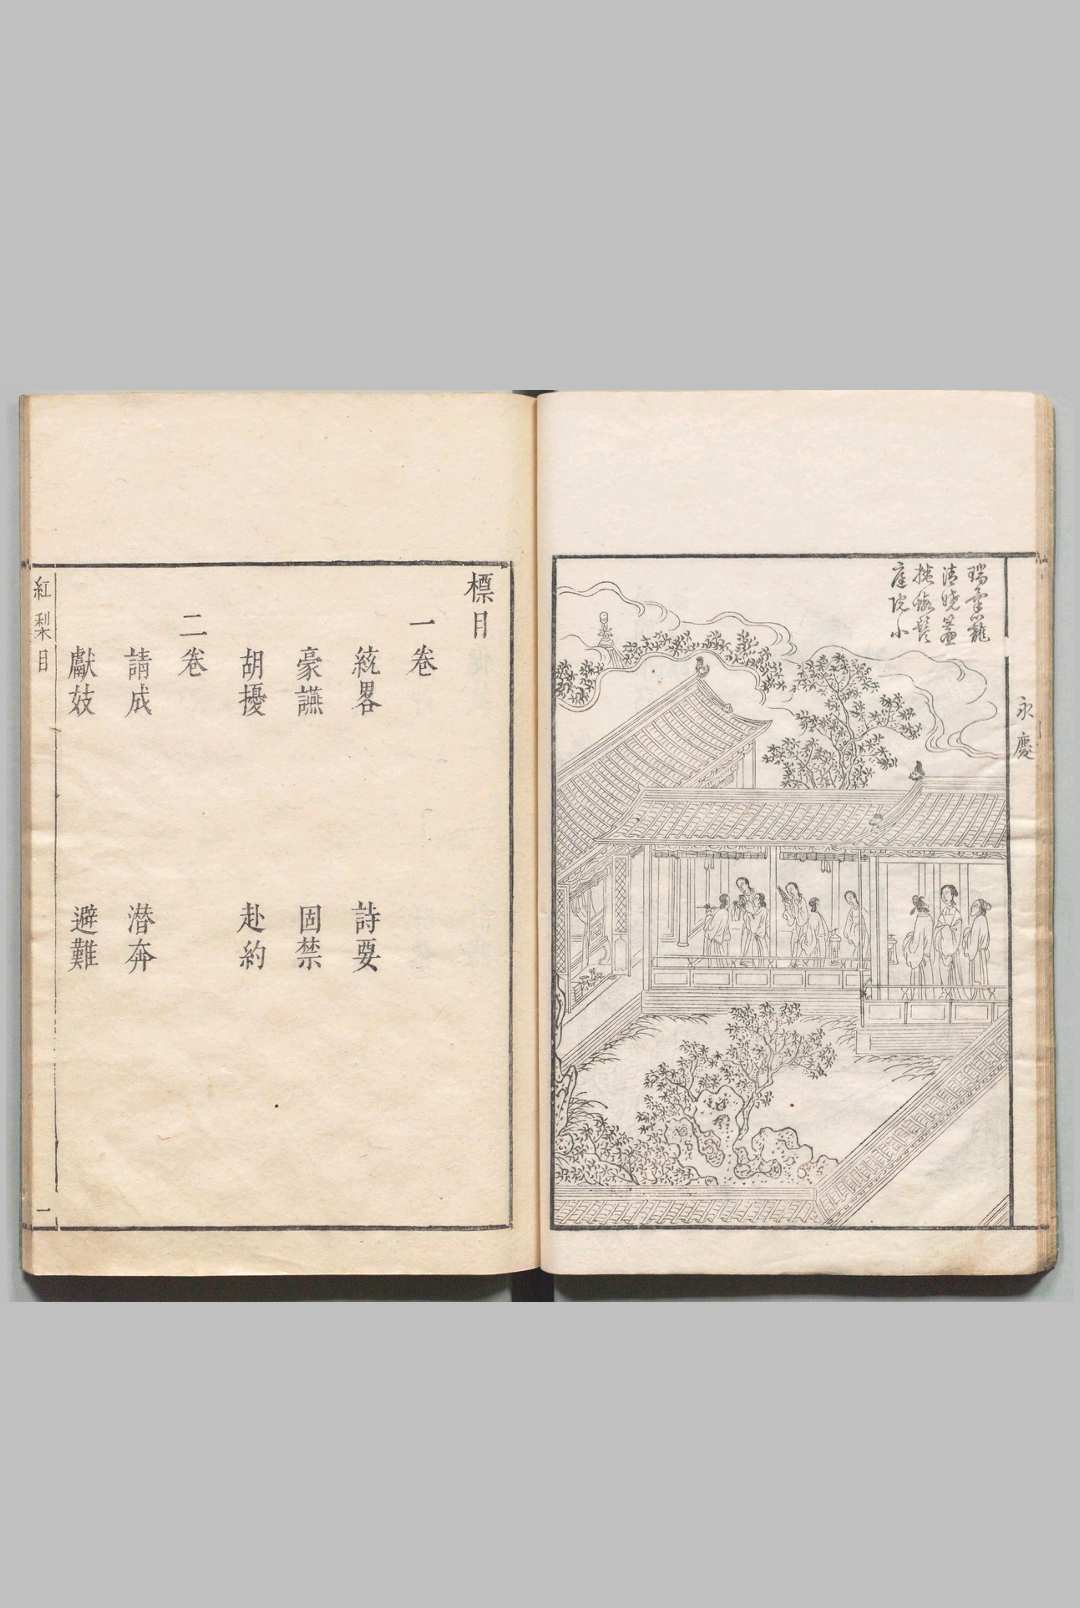 永慶
瑞雲籠
清曉蓋
庭院小
標目
一卷
統畧　詩要
豪讌　固禁
胡擾　赴約
二卷
請成　潜奔
獻妓　避難
紅梨目
一